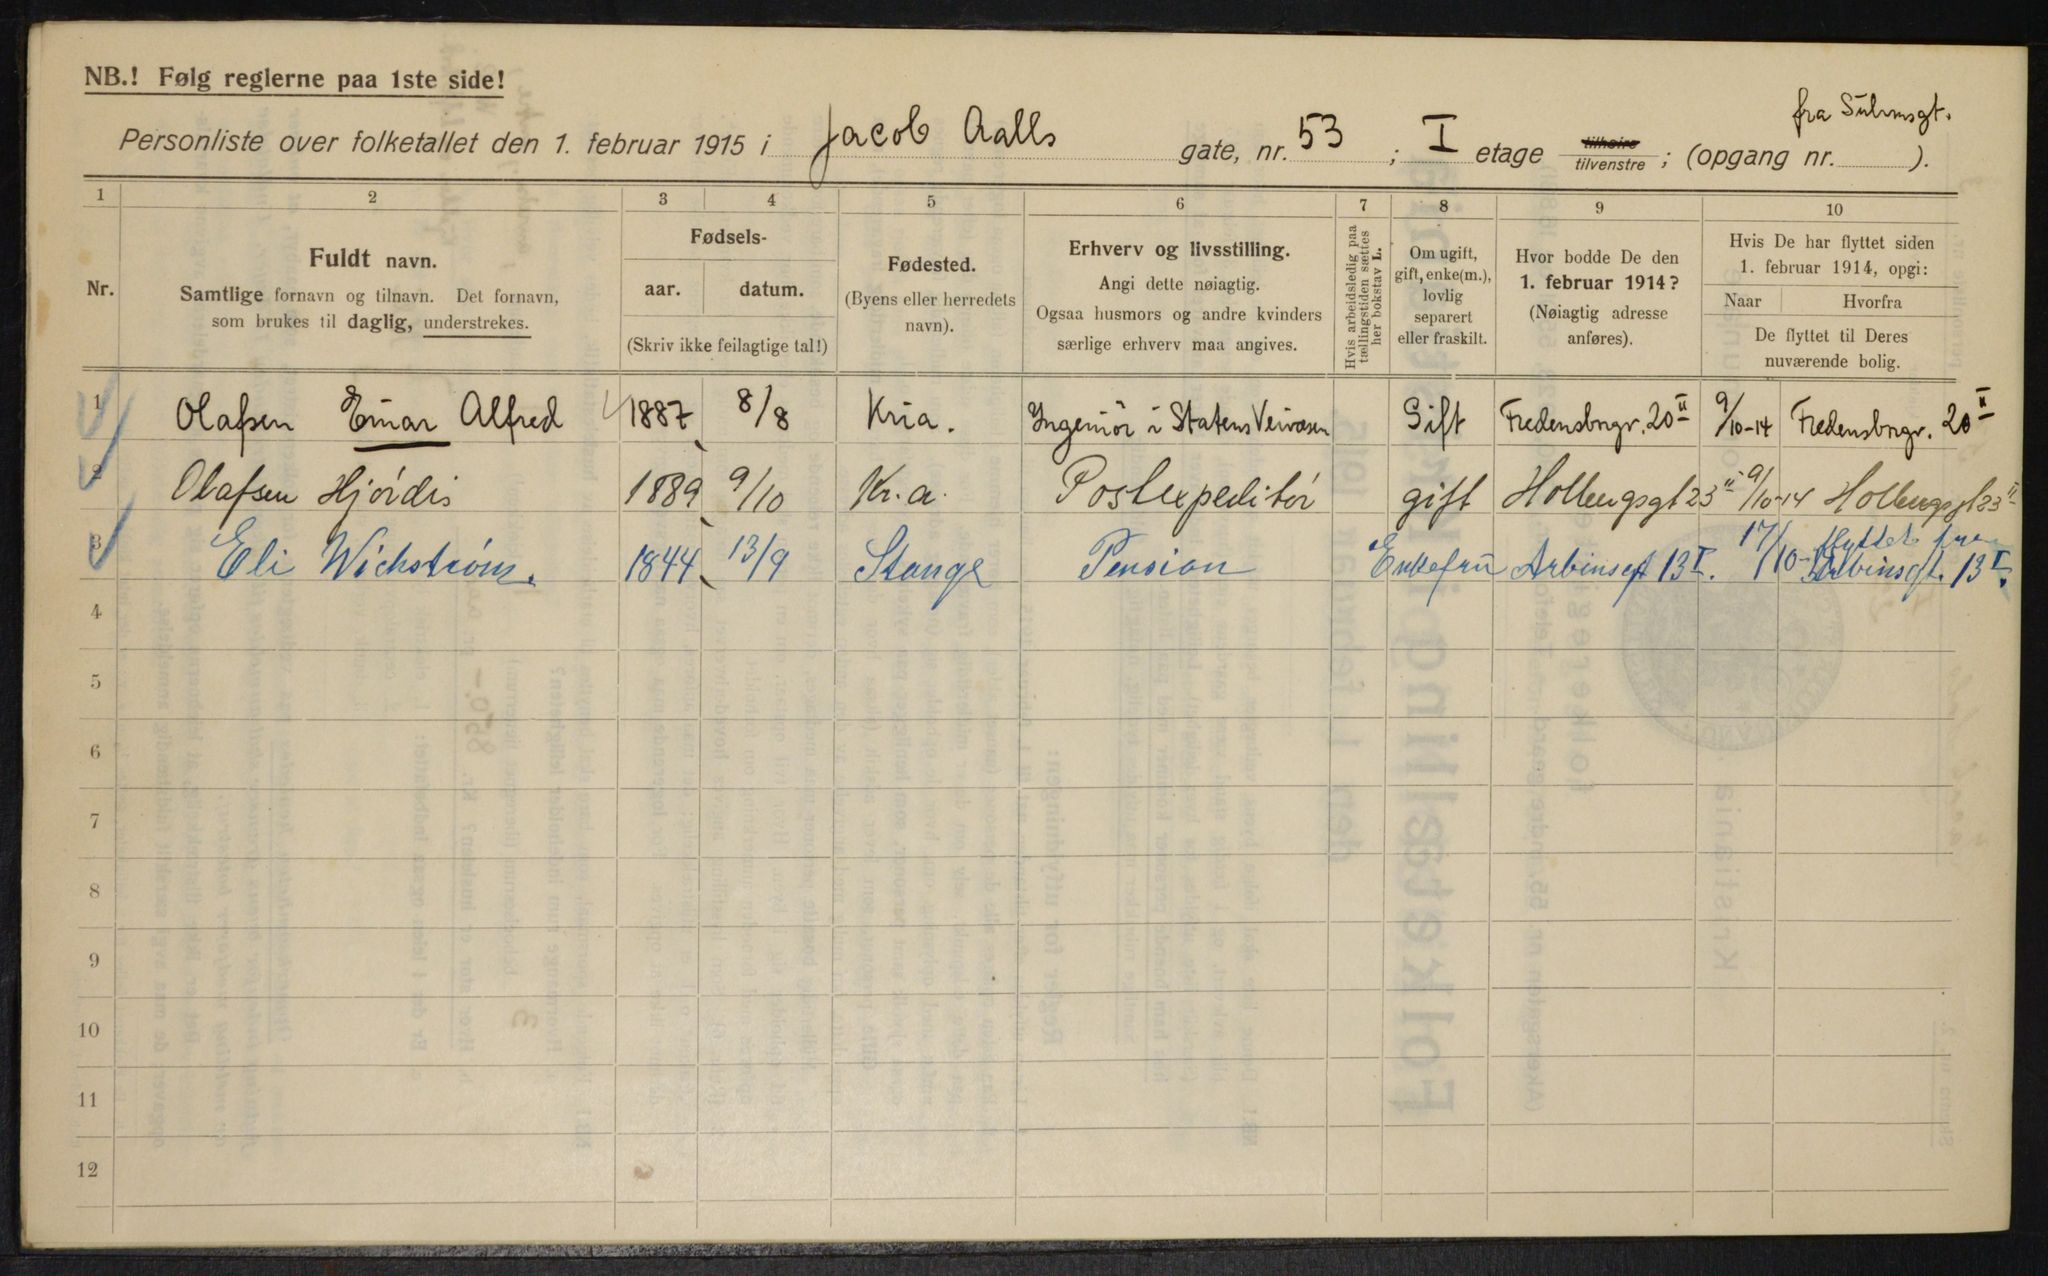 NB.! Følg reglerne paa 1ste side!
fra Suhmsgt.
Personliste over folketallet den 1. februar 1915 i Jacob Aalls gate, nr. 53 ; I etage tilhøire tilvenstre ; (opgang nr. ).
1 2 3 4 5 6 7 8 9 10
Nr.
Fuldt navn.
Samtlige fornavn og tilnavn. Det fornavn,
som brukes til daglig, understrekes.
Fødsels-
aar. datum.
(Skriv ikke feilagtige tal!)
Fødested.
(Byens eller herredets
navn).
Erhverv og livsstilling.
Angi dette nøiagtig.
Ogsaa husmors og andre kvinders
særlige erhverv maa angives.
Hvis arbeidsledig paa
tællingstiden sættes
her bokstav L.
Om ugift,
gift, enke(m.),
lovlig
separert
eller fraskilt.
Hvor bodde De den
1. februar 1914?
(Nøiagtig adresse
anføres).
Hvis De har flyttet siden
1. februar 1914, opgi:
Naar Hvorfra
De flyttet til Deres
nuværende bolig.
1 Olafsen Einar Alfred 1887 8/8 Kria. Ingeniör i Statens Veivæsen Gift Fredensbrgv. 20 II 9/10-14 Fredensbrgv. 20 II
2 Olafsen Hjørdis 1889 9/10 Kr.a. Postexpeditör gift Holbergsgt 23 II 9/10-14 Holbergsgt 23 II
3 Eli Wichstrøm. 1844 13/9 Stange Pension Enkefru Arbinsgt 13 I. 17/10- flyttet fra Arbinsgt. 13 I.
4
5
6
7
8
9
10
11
12